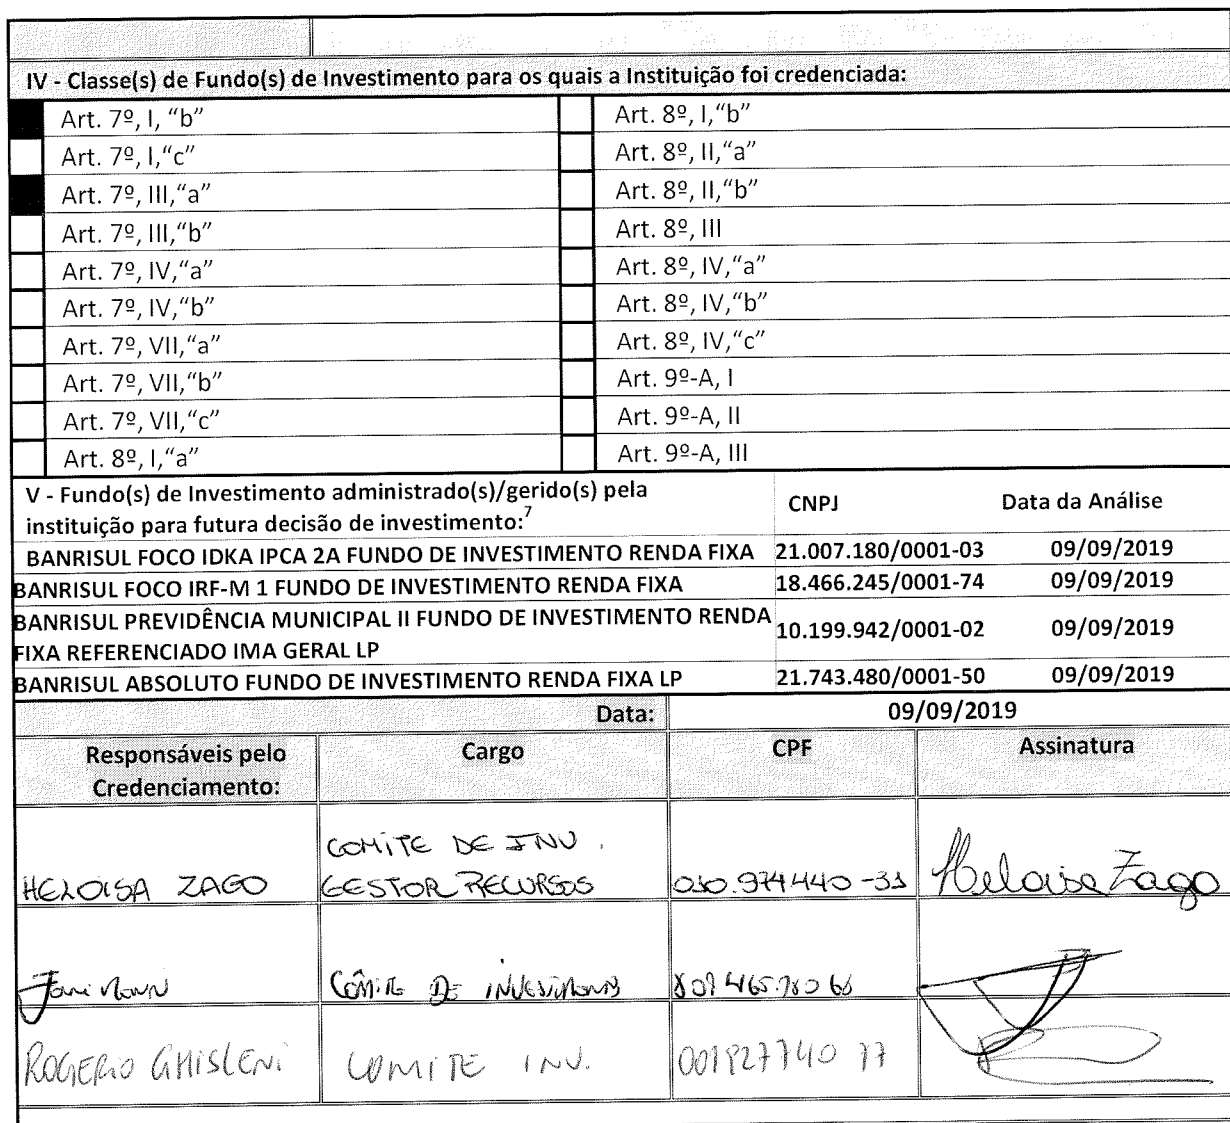 IV - Classe(s) de Fundo(s) de Investimento para os quais a Instituição foi credenciada:
Art. 7º, I, “b” Art. 8º, I,“b”
Art. 7º, I,“c” Art. 8º, II,“a”
Art. 7º, III,“a” Art. 8º, II,“b”
Art. 7º, III,“b” Art. 8º, III
Art. 7º, IV,“a” Art. 8º, IV,“a”
Art. 7º, IV,“b” Art. 8º, IV,“b”
Art. 7º, VII,“a” Art. 8º, IV,“c”
Art. 7º, VII,“b” Art. 9º-A, I
Art. 7º, VII,“c” Art. 9º-A, II
Art. 8º, I,“a” Art. 9º-A, III
V - Fundo(s) de Investimento administrado(s)/gerido(s) pela
instituição para futura decisão de investimento:7 CNPJ Data da Análise
BANRISUL FOCO IDKA IPCA 2A FUNDO DE INVESTIMENTO RENDA FIXA 21.007.180/0001-03 09/09/2019
BANRISUL FOCO IRF-M 1 FUNDO DE INVESTIMENTO RENDA FIXA 18.466.245/0001-74 09/09/2019
BANRISUL PREVIDÊNCIA MUNICIPAL II FUNDO DE INVESTIMENTO RENDA
FIXA REFERENCIADO IMA GERAL LP 10.199.942/0001-02 09/09/2019
BANRISUL ABSOLUTO FUNDO DE INVESTIMENTO RENDA FIXA LP 21.743.480/0001-50 09/09/2019
Data: 09/09/2019
Responsáveis pelo Cargo CPF Assinatura
Credenciamento:
COMITE DE INV.
HELOISA ZAGO GESTOR RECURSOS Heloisa Zago
COMITE DE
ROGERIO GHISLENI COMITE INV.